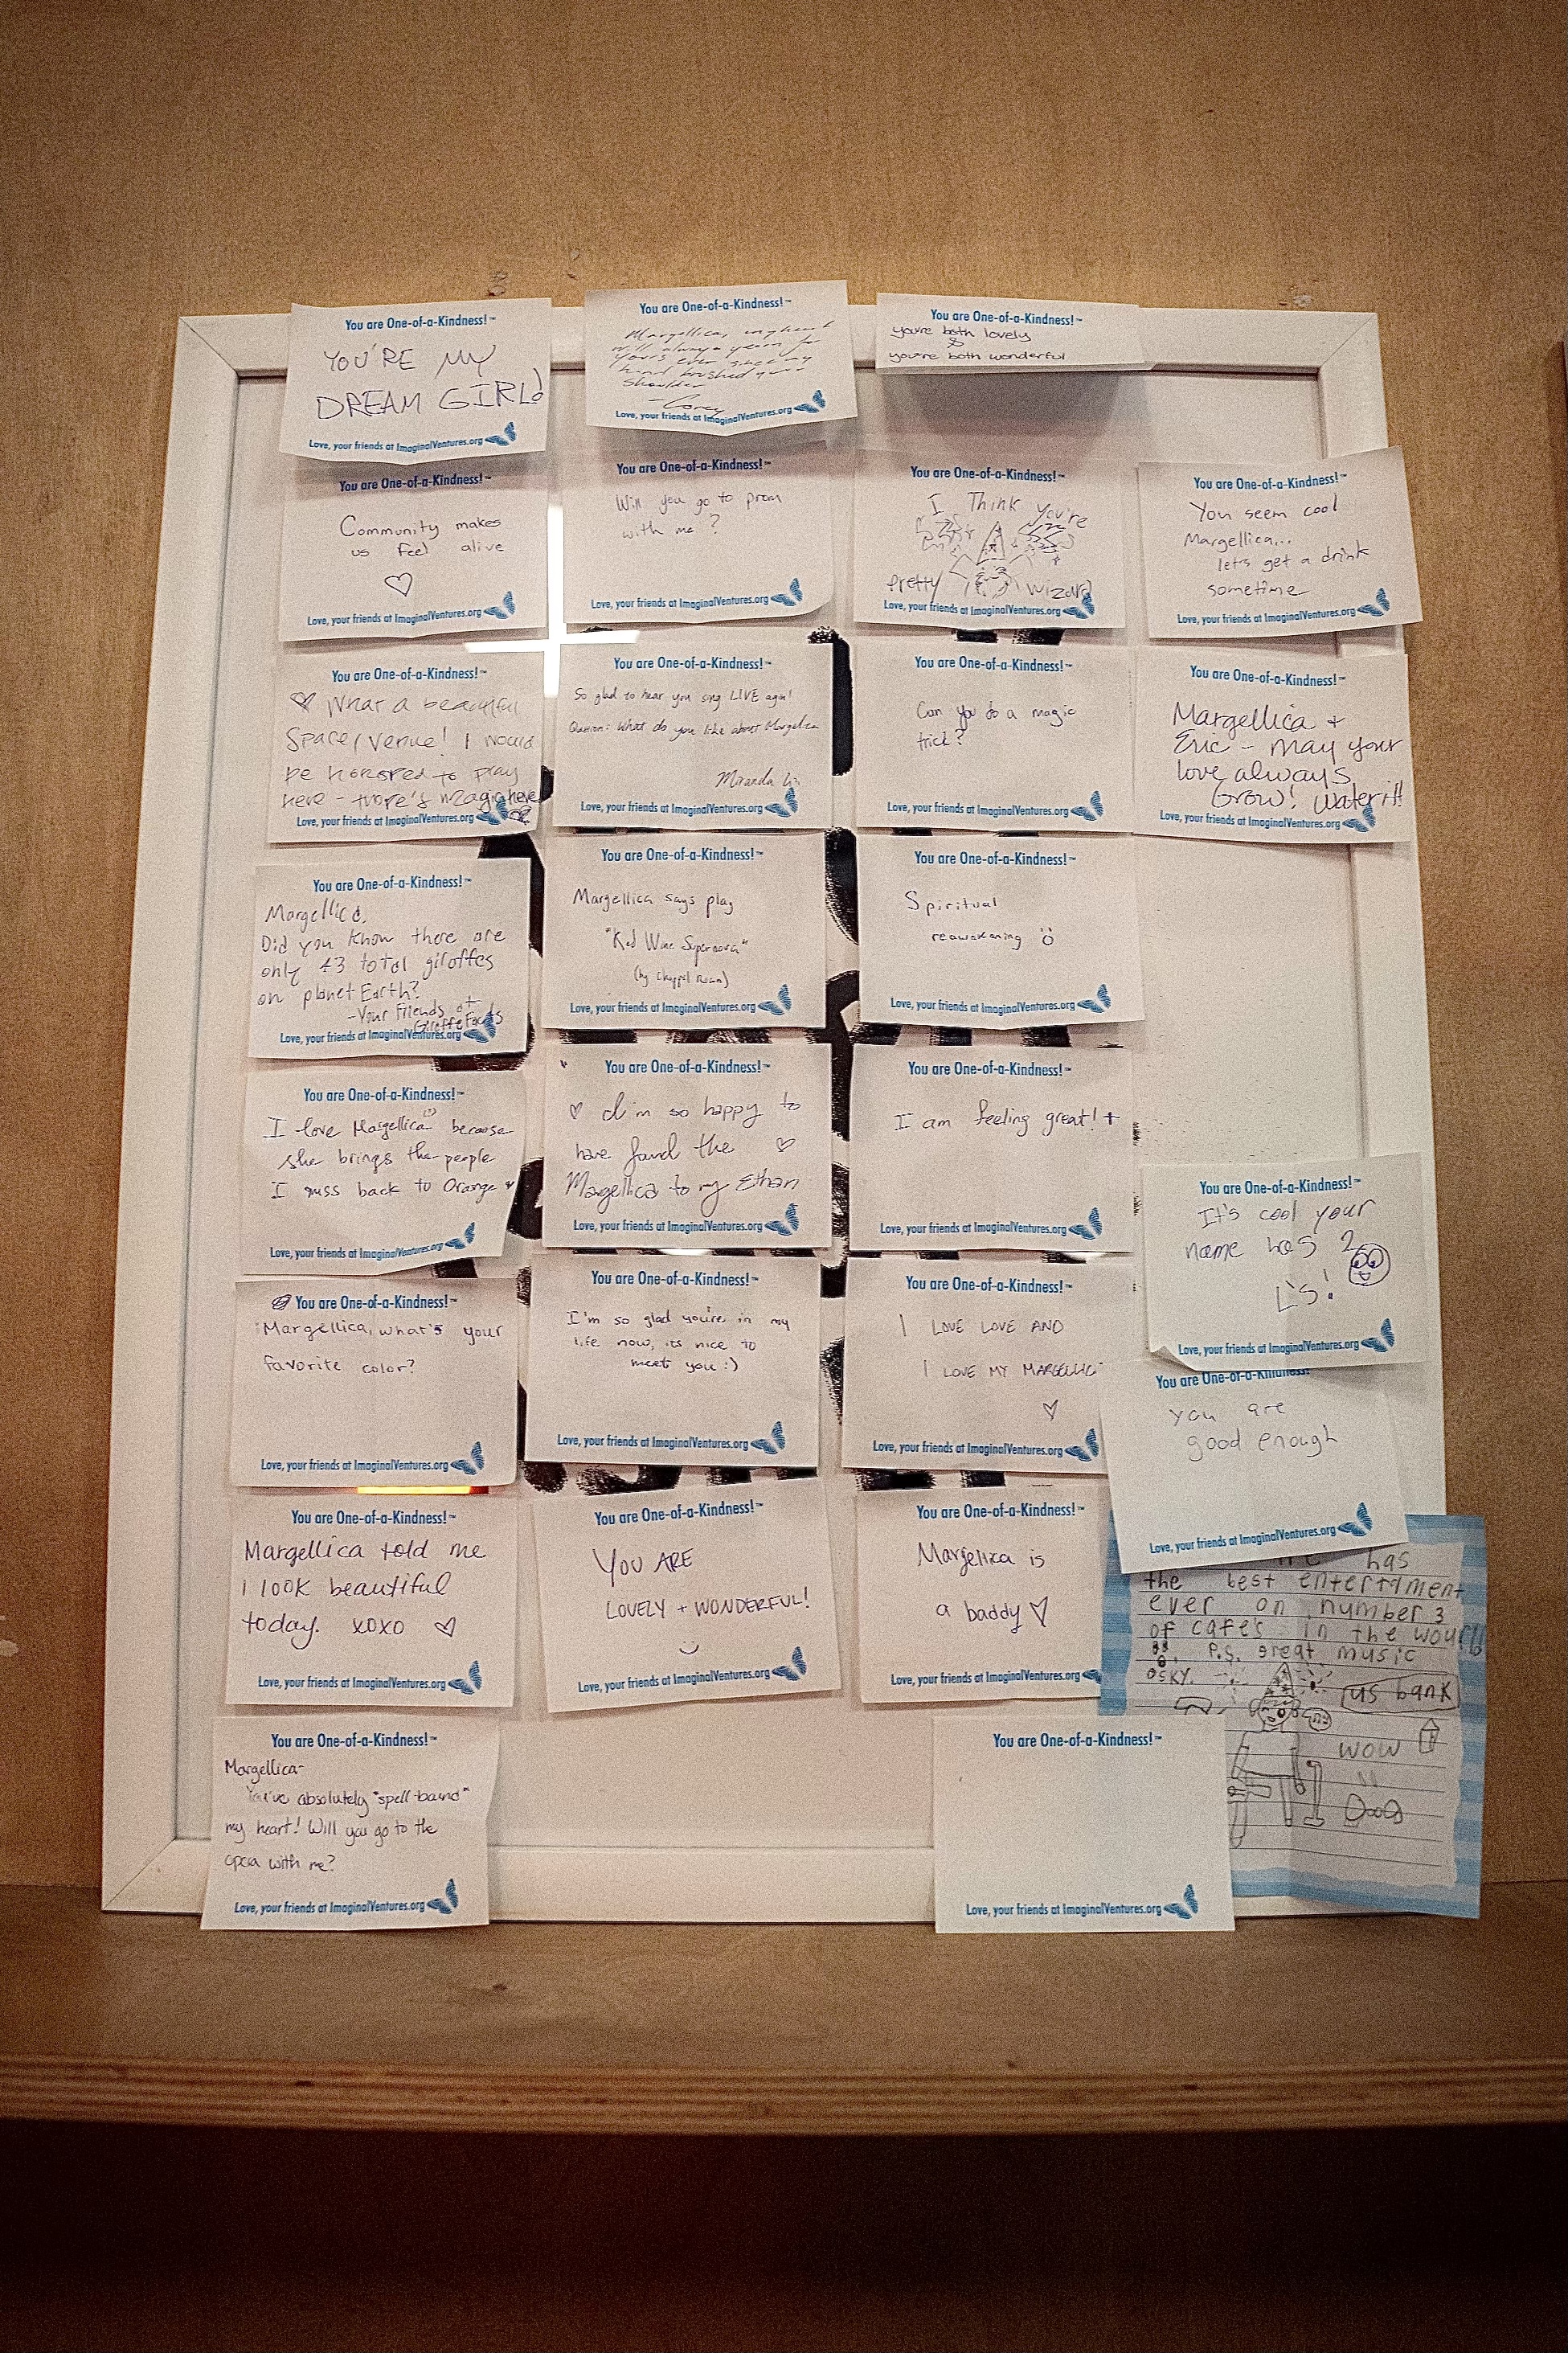 You are One-of-a-Kindness!™
YOU'RE MY
DREAM GIRL!
Love, your friends at ImaginalVentures.org
You are One-of-a-Kindness!™
Margellica, my heart
will always yearn for
yours ever since my
hand brushed your
shoulder
-Corey
Love, your friends at ImaginalVentures.org
You are One-of-a-Kindness!™
you're both lovely
&
you're both wonderful
You are One-of-a-Kindness!™
Community makes
us feel alive
Love, your friends at ImaginalVentures.org
You are One-of-a-Kindness!™
Will you go to prom
with me?
Love, your friends at ImaginalVentures.org
You are One-of-a-Kindness!™
I Think you're
pretty wizard
Love, your friends at ImaginalVentures.org
You are One-of-a-Kindness!™
You seem cool
Margellica...
let's get a drink
sometime
Love, your friends at ImaginalVentures.org
You are One-of-a-Kindness!™
♡ What a beautiful
Space/Venue! I would
be honored to play
here - there's magic here
Love, your friends at ImaginalVentures.org
You are One-of-a-Kindness!™
So glad to hear you sing LIVE again!
Question: What do you like about Margellica
Miranda
Love, your friends at ImaginalVentures.org
You are One-of-a-Kindness!™
Can you do a magic
trick?
Love, your friends at ImaginalVentures.org
You are One-of-a-Kindness!™
Margellica +
Eric - may your
love always
Grow! Water it!
Love, your friends at ImaginalVentures.org
You are One-of-a-Kindness!™
Margellica,
Did you know there are
only 43 total giraffes
on planet Earth?
-Your friends at
Giraffe Facts
Love, your friends at ImaginalVentures.org
You are One-of-a-Kindness!™
Margellica says play
"Red Wine Supernova"
(by Chappel Roan)
Love, your friends at ImaginalVentures.org
You are One-of-a-Kindness!™
Spiritual
reawakening
Love, your friends at ImaginalVentures.org
You are One-of-a-Kindness!™
I love Margellica because
she brings the people
I miss back to Orange
Love, your friends at ImaginalVentures.org
You are One-of-a-Kindness!™
♡ I'm so happy to
have found the ♡
Magellica to my Ethan
Love, your friends at ImaginalVentures.org
You are One-of-a-Kindness!™
I am feeling great! +
Love, your friends at ImaginalVentures.org
You are One-of-a-Kindness!™
It's cool your
name has 2
L's!
Love, your friends at ImaginalVentures.org
You are One-of-a-Kindness!™
Margellica, what's your
favorite color?
Love, your friends at ImaginalVentures.org
You are One-of-a-Kindness!™
I'm so glad you're in my
life now, its nice to
meet you :)
Love, your friends at ImaginalVentures.org
You are One-of-a-Kindness!™
I LOVE LOVE AND
I LOVE MY MARGELLIC
♡
Love, your friends at ImaginalVentures.org
You are One-of-a-Kindness!
you are
good enough
Love, your friends at ImaginalVentures.org
You are One-of-a-Kindness!™
Margellica told me
I look beautiful
today. xoxo ♡
Love, your friends at ImaginalVentures.org
You are One-of-a-Kindness!™
YOU ARE
LOVELY + WONDERFUL!
Love, your friends at ImaginalVentures.org
You are One-of-a-Kindness!™
Margelica is
a baddy ♡
Love, your friends at ImaginalVentures.org
has
the best entertment
ever on number 3
of cafe's in the would
P.S. great music
OSKY.
us bank
wow
You are One-of-a-Kindness!™
Margellica-
You've absolutely "spell-bound"
my heart! Will you go to the
opera with me?
Love, your friends at ImaginalVentures.org
You are One-of-a-Kindness!™
Love, your friends at ImaginalVentures.org